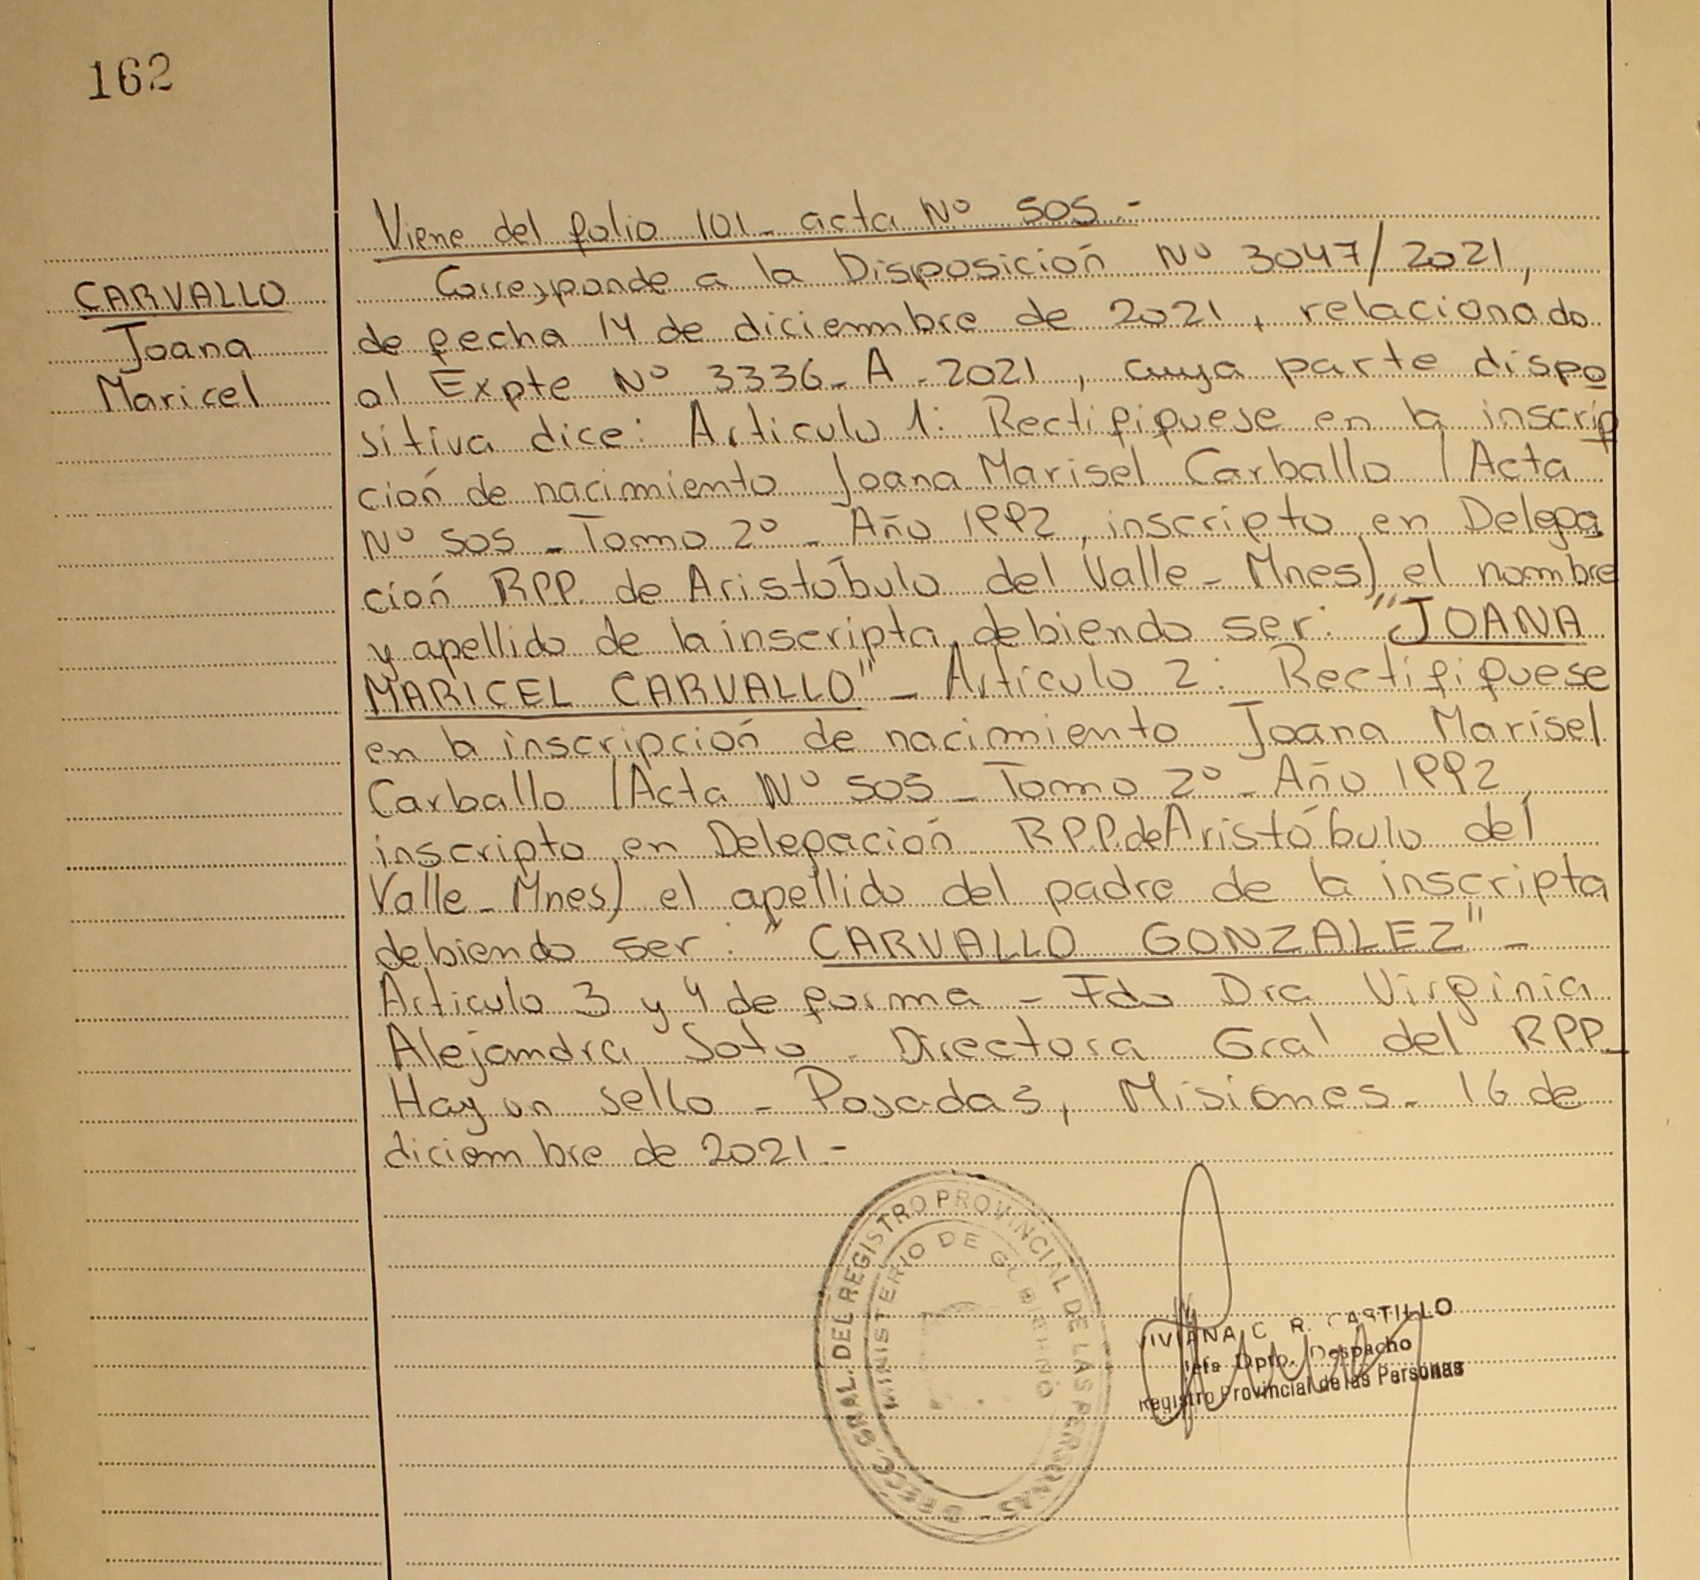 162
CARVALLO
Joana
Maricel
Viene del folio 101_ acta Nº 505.-
Corresponde a la Disposición Nº 3047/2021,
de fecha 14 de diciembre de 2021, relacionado
al Expte Nº 3336_A_2021, cuya parte dispo
sitiva dice: Articulo 1: Rectifiquese en la inscrip
ción de nacimiento Joana Marisel Carballo (Acta
Nº 505 _ Tomo 2º _ Año 1992, inscripto en Delega
ción RPP. de Aristóbulo del Valle_ Mnes) el nombre
y apellido de la inscripta, debiendo ser: "JOANA
MARICEL CARVALLO"_ Artículo 2: Rectifiquese
en la inscripción de nacimiento Joana Marisel
Carballo (Acta Nº 505 _ Tomo 2º _ Año 1992,
inscripto en Delegación RPP. de Aristóbulo del
Valle_ Mnes) el apellido del padre de la inscripta
debiendo ser: "CARVALLO GONZALEZ"_
Articulo 3 y 4 de forma _ Fdo Dra Virginia
Alejandra Soto _ Directora Gral del RPP_
Hay un sello _ Posadas, Misiones_ 16 de
diciembre de 2021.-
DIRECC. GRAL. DEL REGISTRO PROVINCIAL DE LAS PERSONAS -
MINISTERIO DE GOBIERNO
VIVIANA C. R. CASTILLO
Jefa Dpto. Despacho
Registro Provincial de las Personas